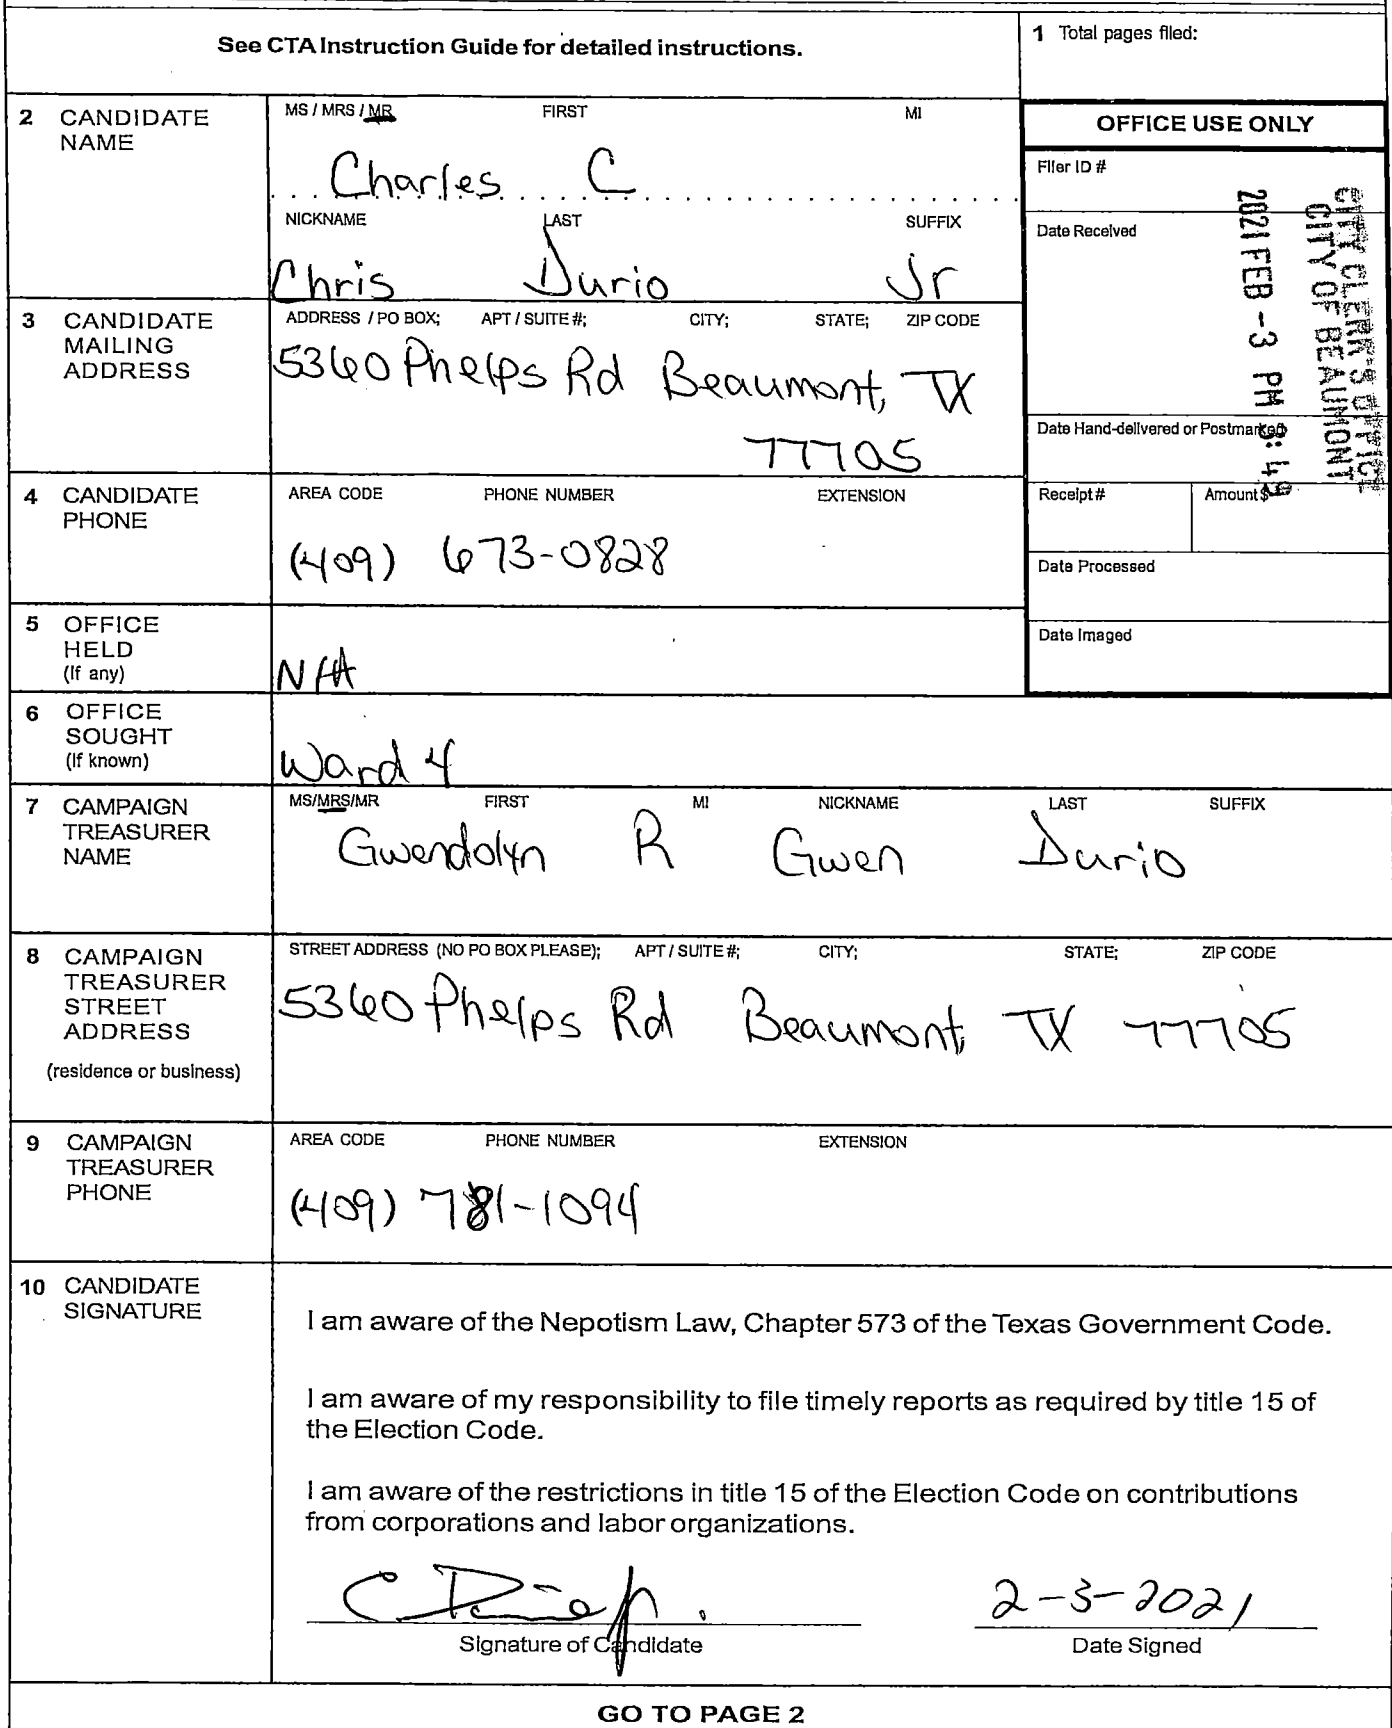 See CTA Instruction Guide for detailed instructions.
1 Total pages filed:
2 CANDIDATE NAME
MS / MRS / MR FIRST MI
Charles C
NICKNAME LAST SUFFIX
Chris Durio Jr
OFFICE USE ONLY
Filer ID #
Date Received
CITY CLERK'S OFFICE
CITY OF BEAUMONT
2021 FEB -3 PM 3:49
Date Hand-delivered or Postmarked
Receipt # Amount $
Date Processed
Date Imaged
3 CANDIDATE MAILING ADDRESS
ADDRESS / PO BOX; APT / SUITE #; CITY; STATE; ZIP CODE
5360 Phelps Rd Beaumont, TX
77705
4 CANDIDATE PHONE
AREA CODE PHONE NUMBER EXTENSION
(409) 673-0828
5 OFFICE HELD (If any)
N/A
6 OFFICE SOUGHT (If known)
Ward 4
7 CAMPAIGN TREASURER NAME
MS/MRS/MR FIRST MI NICKNAME LAST SUFFIX
Gwendolyn R Gwen Durio
8 CAMPAIGN TREASURER STREET ADDRESS
(residence or business)
STREET ADDRESS (NO PO BOX PLEASE); APT / SUITE #; CITY; STATE; ZIP CODE
5360 Phelps Rd Beaumont, TX 77705
9 CAMPAIGN TREASURER PHONE
AREA CODE PHONE NUMBER EXTENSION
(409) 781-1094
10 CANDIDATE SIGNATURE
I am aware of the Nepotism Law, Chapter 573 of the Texas Government Code.
I am aware of my responsibility to file timely reports as required by title 15 of
the Election Code.
I am aware of the restrictions in title 15 of the Election Code on contributions
from corporations and labor organizations.
2-3-2021
Signature of Candidate Date Signed
GO TO PAGE 2